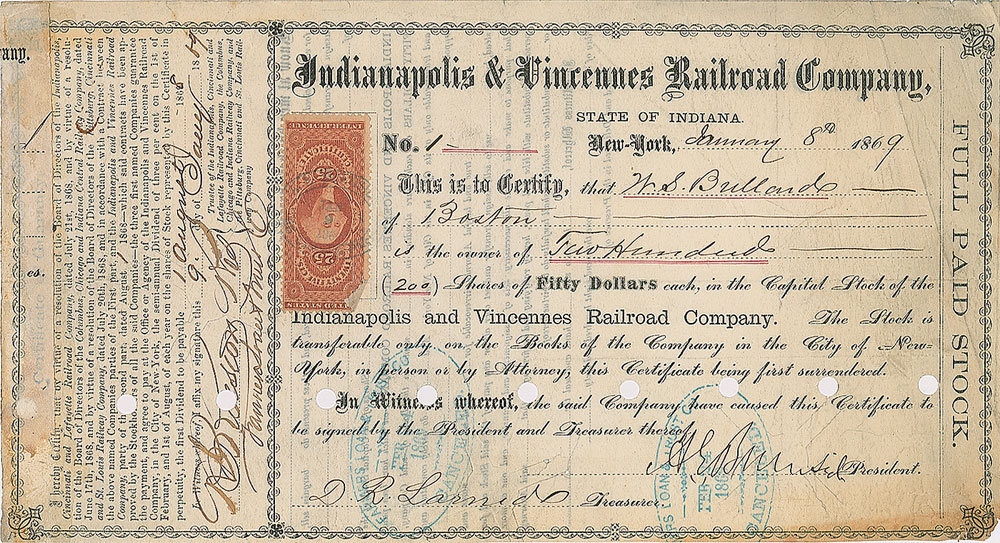 Indianapolis & Vincennes Railroad Company,
STATE OF INDIANA.
No. 1
New-York, January 8th 1869
This is to Certify, that W. S. Bullard
of Boston
is the owner of Two Hundred
(200) Shares of Fifty Dollars each, in the Capital Stock of the
Indianapolis and Vincennes Railroad Company. The Stock is
transferable only on the Books of the Company in the City of New-
York, in person or by Attorney, this Certificate being first surrendered.
In Witness whereof, the said Company have caused this Certificate to
be signed by the President and Treasurer thereof.
President.
D. R. Larned Treasurer
FULL PAID STOCK.
25 25
25 25
I hereby Certify, that by virtue of a resolution of the Board of Directors of the Indianapolis,
Cincinnati and Lafayette Railroad Company, dated July 21st, 1868, and by virtue of a resolu-
tion of the Board of Directors of the Columbus, Chicago and Indiana Central Railway Company, dated
June 17th, 1868, and by virtue of a resolution of the Board of Directors of the Pittsburg, Cincinnati
and St. Louis Railway Company, dated July 20th, 1868, and in accordance with a Contract between
the above named Companies parties of the first part, and the Indianapolis and Vincennes Railroad
Company, party of the second part, dated August 1868—which said contracts have been ap-
proved by the Stockholders of all the said Companies—the three first named Companies guarantee
the payment, and agree to pay at the Office or Agency of the Indianapolis and Vincennes Railroad
Company, in the City of New York, the semi-annual Dividend of three per cent on the 1st of
February, and 1st of August of each year on the shares of Stock represented by this Certificate in
perpetuity, the first Dividend to be payable
In Witness whereof I affix my signature this 9 day of 1869
Trustee of the Indianapolis, Cincinnati and
Lafayette Railroad Company, the Columbus,
Chicago and Indiana Railway Company, and
the Pittsburg, Cincinnati and St. Louis Rail-
way Company.
any.
es.